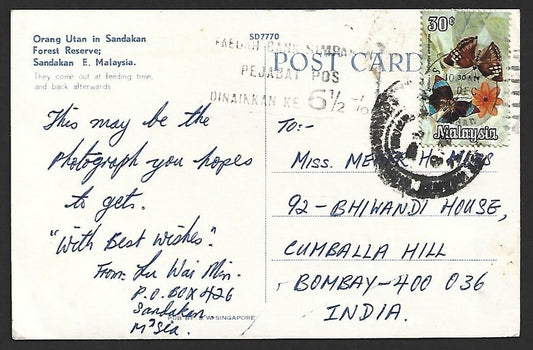 Orang Utan in Sandakan
Forest Reserve;
Sandakan E. Malaysia.
They come out at feeding time,
and back afterwards
SD7770
POST CARD
PEJABAT POS
DINAIKKAN KE 6½ %
30¢
10 30 AM
DEC
Malaysia
This may be the
photograph you hopes
to gets.
"With Best wishes".
From: Wai Min.
P.O. BOX 426
Sandakan
M'Sia.
SINGAPORE
To:-
MISS. H.
92 - BHIWANDI HOUSE,
CUMBALLA HILL
BOMBAY-400 036
INDIA.